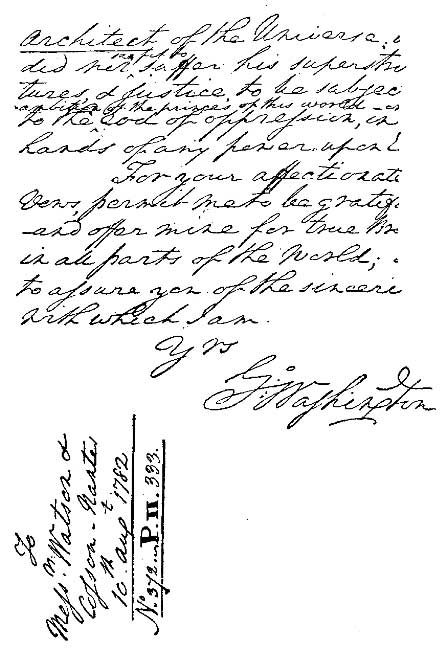 Architect of the Universe;
did not see fit to suffer his superstru
tures, & justice, to be subjec
ambition of the princes of this world - or
to the rod of oppression, in
hands of any power upon
For your affectionat
Vows, permit me to be grateful
- and offer mine for true Br
in all parts of the World;
to assure you of the sinceri
with which I am.
Yrs
Go: Washington
To
Messrs Watson &
Cosson - Nantes
10th augt 1782
No. 372. P. II. 333.